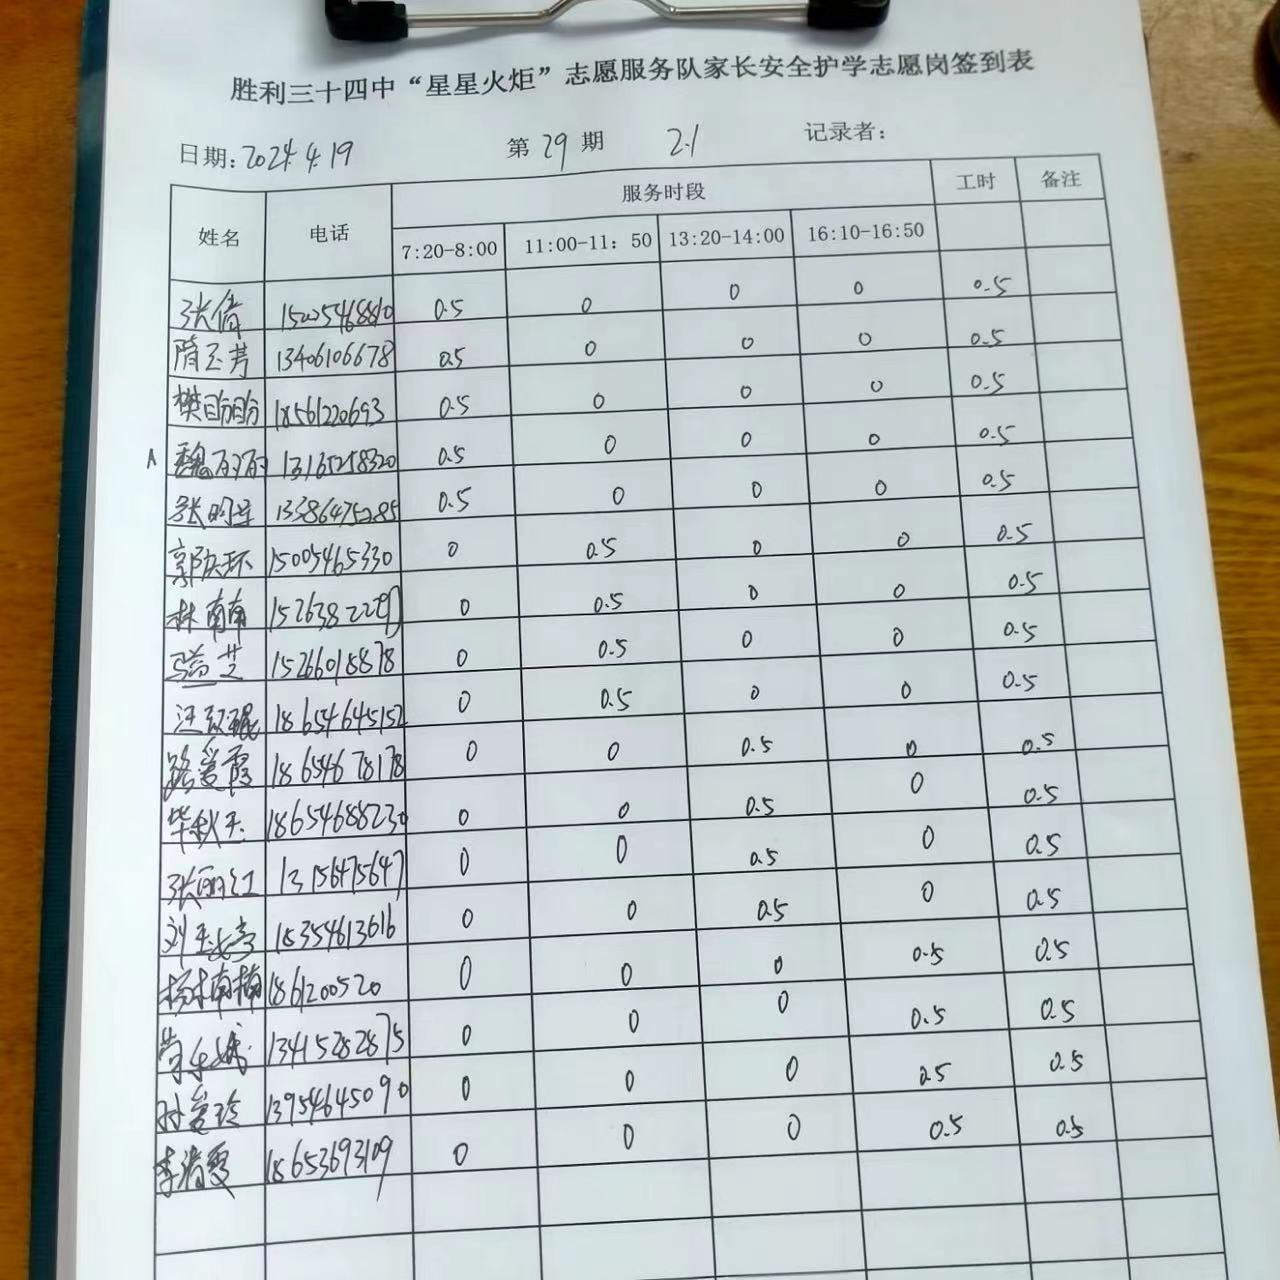 胜利三十四中“星星火炬”志愿服务队家长安全护学志愿岗签到表
日期: 2024.4.19 第 29 期 2.1 记录者:
姓名 电话 服务时段 工时 备注
7:20-8:00 11:00-11: 50 13:20-14:00 16:10-16:50
张倩 0.5 0 0 0 0.5
隋玉芳 13406106678 0.5 0 0 0 0.5
樊盼盼 18561220693 0.5 0 0 0 0.5
魏丽丽 13165258320 0.5 0 0 0 0.5
张 13386475285 0.5 0 0 0 0.5
郭欣环 15005465330 0 0.5 0 0 0.5
林南南 0 0.5 0 0 0.5
15266018878 0 0.5 0 0 0.5
汪 18654645152 0 0.5 0 0 0.5
路爱霞 18654678178 0 0 0.5 0 0.5
毕秋玉 18654688230 0 0 0.5 0 0.5
张丽红 13156475647 0 0 0.5 0 0.5
刘玉婷 18354613616 0 0 0.5 0 0.5
杨楠楠 1861200520 0 0 0 0.5 0.5
13415282875 0 0 0 0.5 0.5
时爱玲 13954645090 0 0 0 0.5 0.5
李清雯 18653693109 0 0 0 0.5 0.5